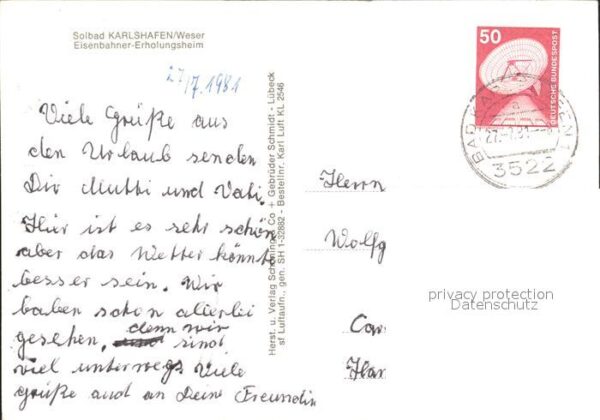 Solbad KARLSHAFEN/Weser
Eisenbahner-Erholungsheim
27/7.1981
Viele Grüße aus
den Urlaub senden
Dir Mutti und Vati.
Hier ist es sehr schön
aber das Wetter könnte
besser sein. Wir
haben schon allerlei
gesehen, denn wir sind
viel unterwegs Viele
grüße auch an Deine Freundin
Herst. u. Verlag Schöning & Co + Gebrüder Schmidt - Lübeck
sf Luftaufn., gen. SH 1-32882 - Bestellnr. Karl Luft KL 2546
50
DEUTSCHE BUNDESPOST
BAD KARLSHAFEN 1
27.-7.81
3522
Herrn
Wolfg
privacy protection
Datenschutz